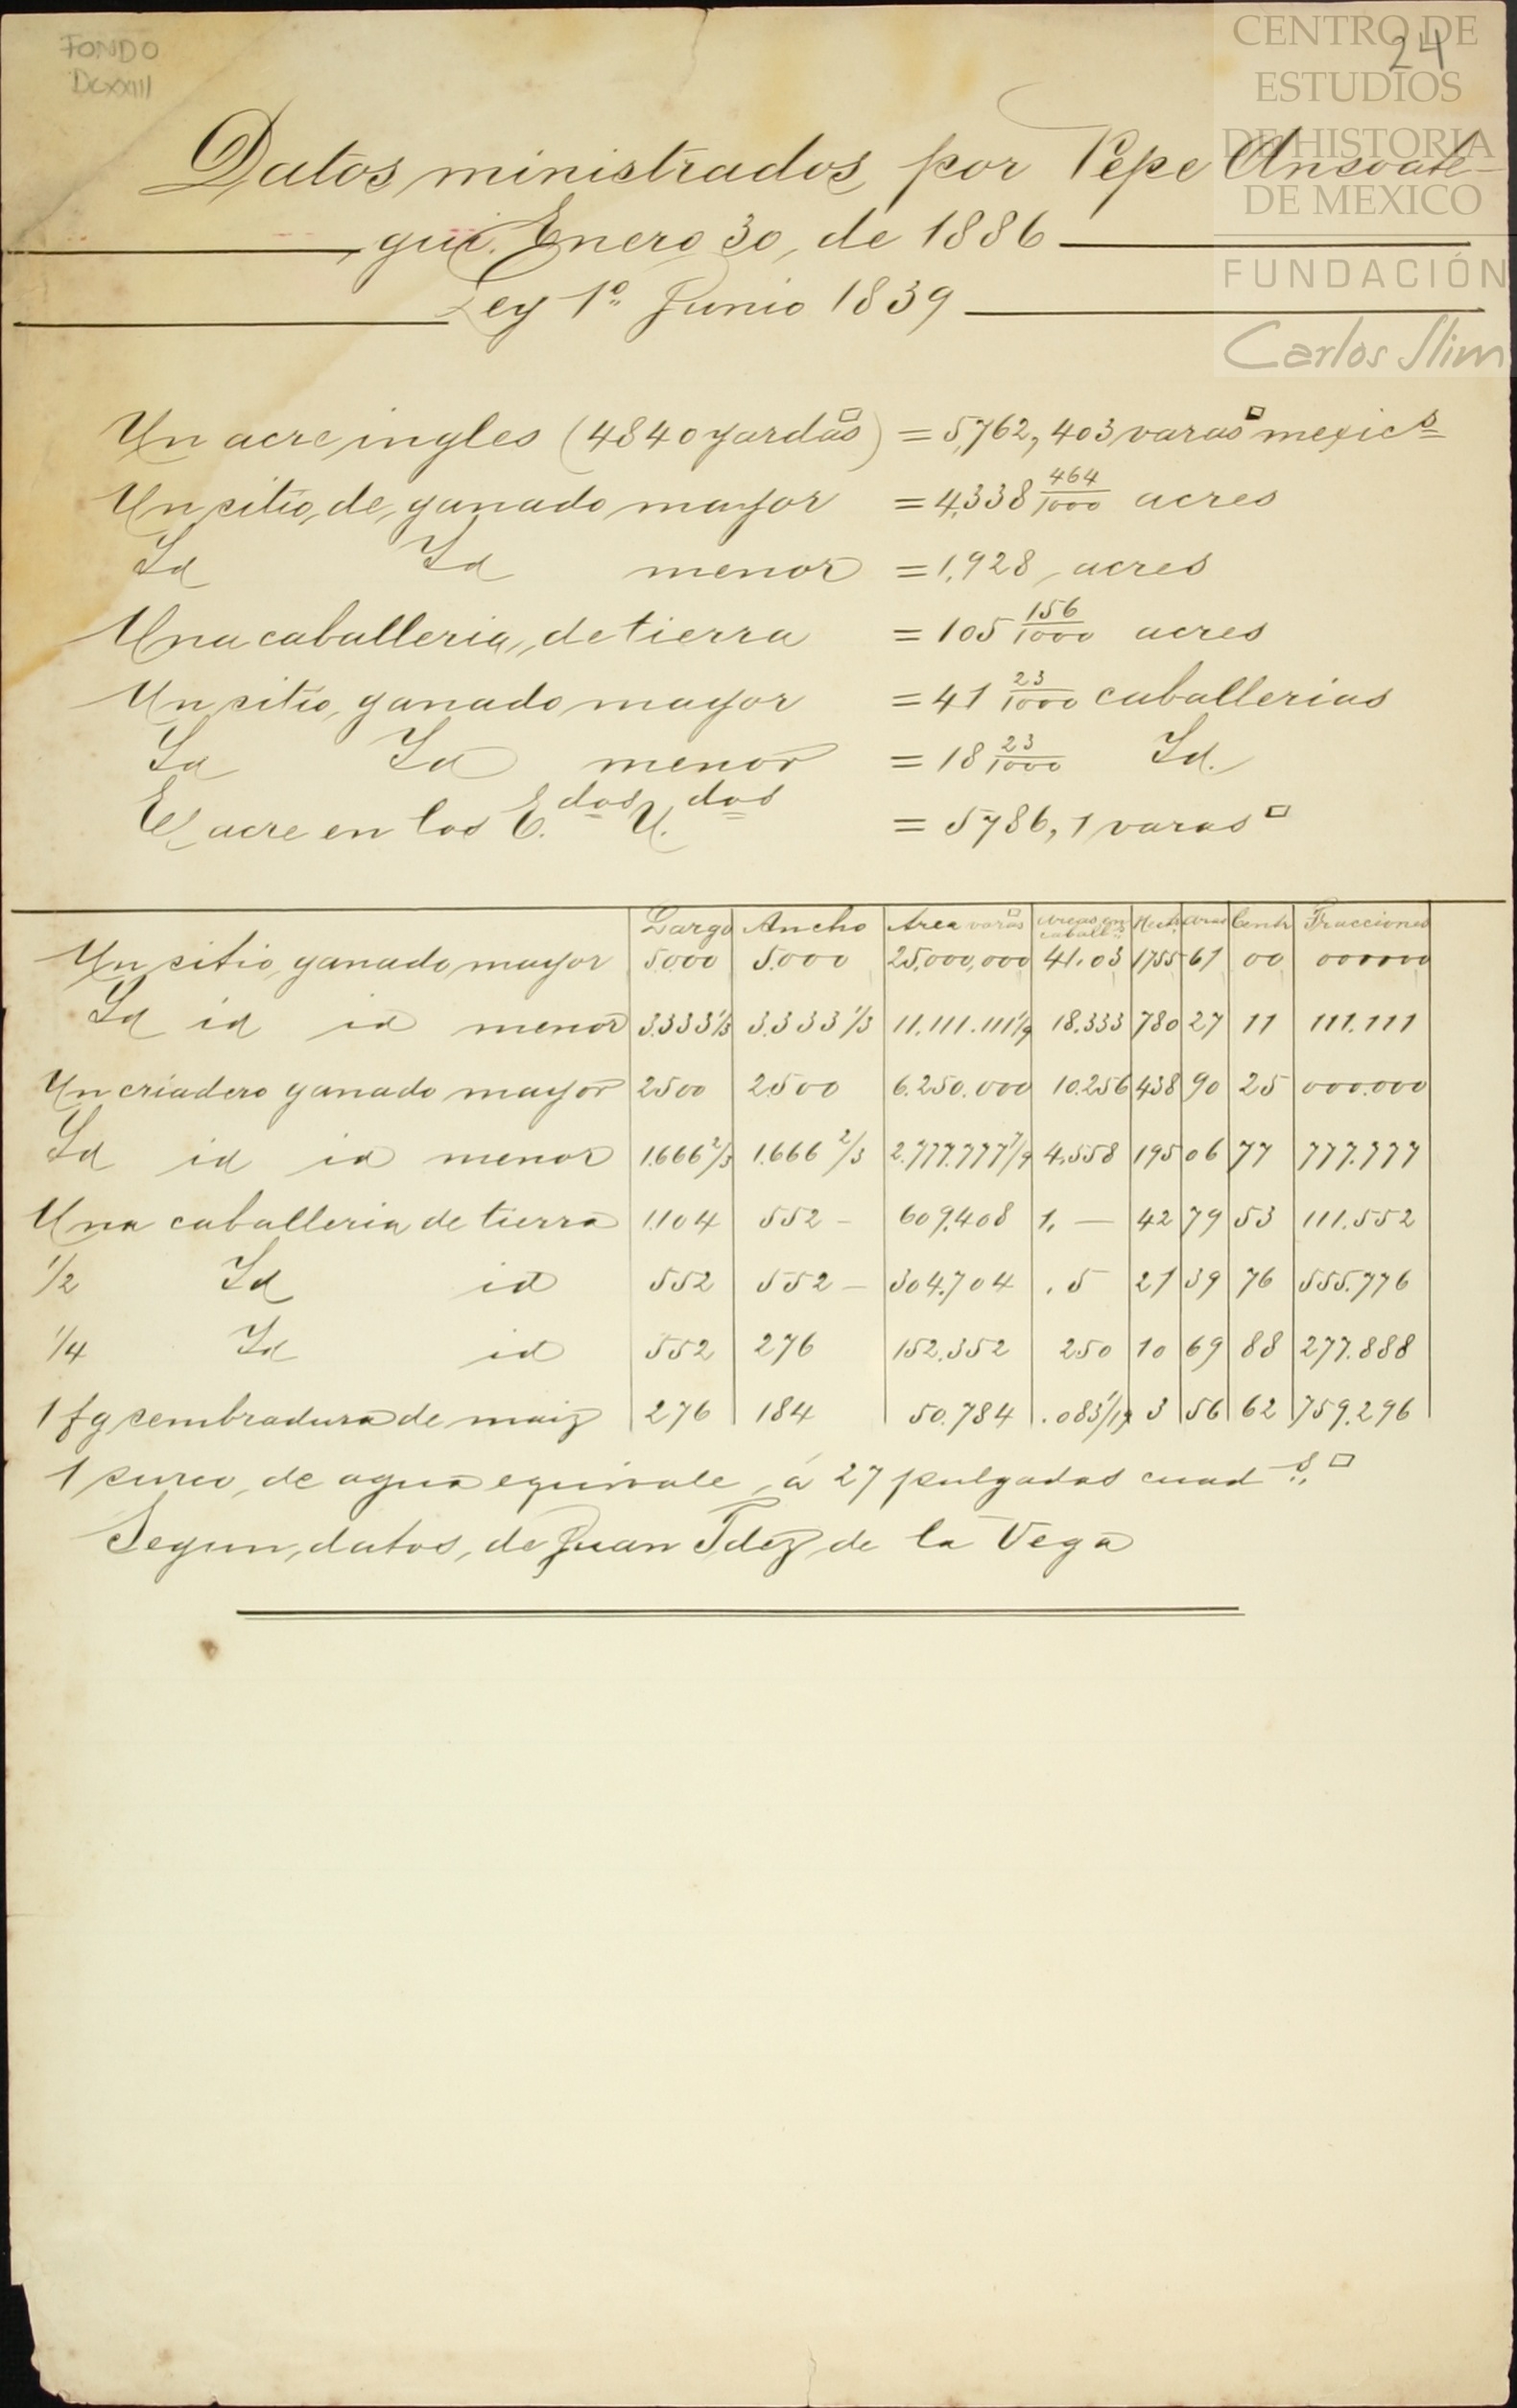 FONDO
DCXXIII
24
CENTRO DE
ESTUDIOS
DE HISTORIA
DE MEXICO
FUNDACIÓN
Carlos Slim
Datos ministrados por Pepe Ansoate-
gui. Enero 30, de 1886
Ley 1º Junio 1839
Un acre ingles (4840 yardas□) = 5,762,403 varas□ mexics
Un sitio, de, ganado mayor = 4,338 464/1000 acres
Id Id menor = 1,928, acres
Una caballeria, de tierra = 105 156/1000 acres
Un sitio, ganado mayor = 41 23/1000 caballerias
Id Id menor = 18 23/1000 Id.
El acre en los E.dos U.dos = 5786,1 varas□
Largo Ancho Area varas□ Areas en caballs Hect. Aras Cent. Fracciones
Un sitio ganado mayor 5.000 5.000 25,000,000 41.03 1755 61 00 000000
Id id id menor 3.333 1/3 3.333 1/3 11.111.111 1/9 18.333 780 27 11 111.111
Un criadero ganado mayor 2500 2500 6.250.000 10.256 438 90 25 000.000
Id id id menor 1.666 2/3 1.666 2/3 2.777.777 7/9 4.558 195 06 77 777.777
Una caballeria de tierra 1.104 552 - 609.408 1. — 42 79 53 111.552
1/2 Id id 552 552 - 304.704 .5 21 39 76 555.776
1/4 Id id 552 276 152.352 250 10 69 88 277.888
1 fg sembradura de maiz 276 184 50.784 .083 3 56 62 759.296
1 surco, de agua equivale, á 27 pulgadas cuads. □
Segun, datos, de Juan Fdez de la Vega